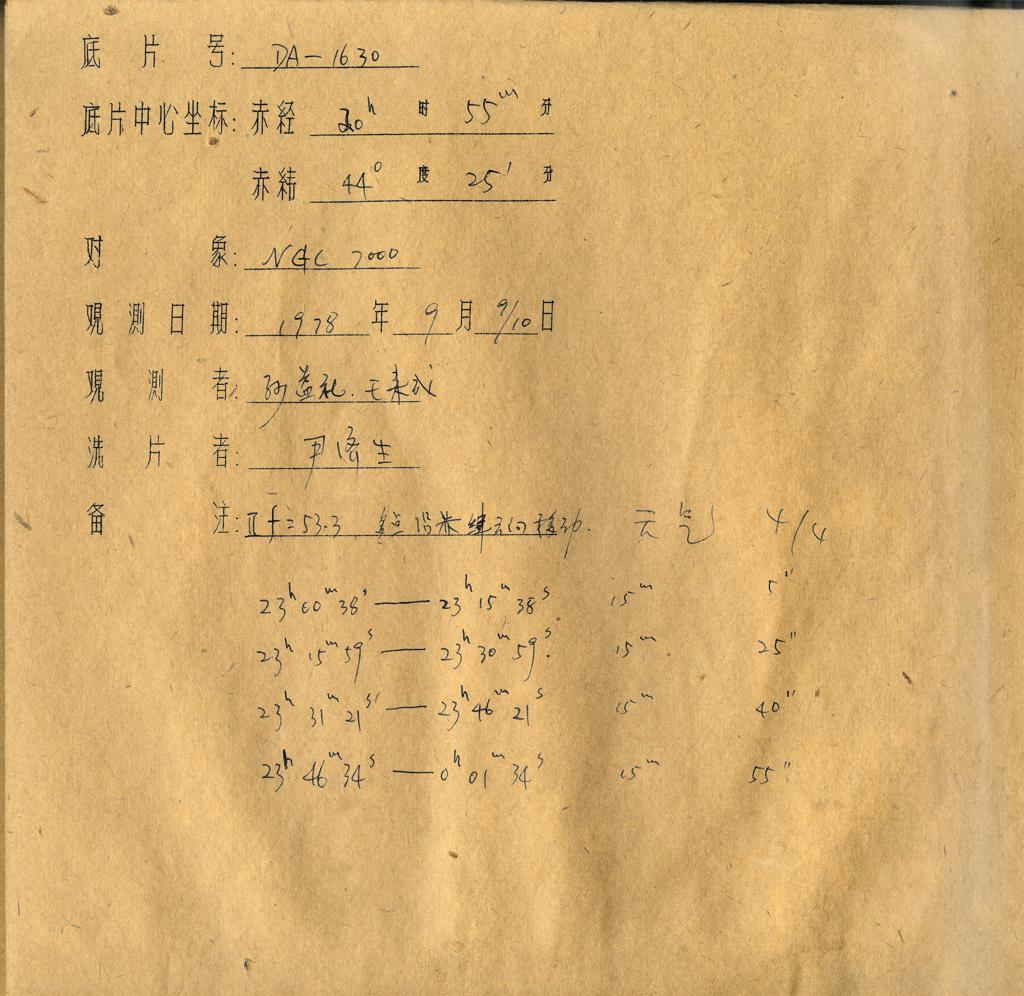 底片号: DA-1630
底片中心坐标: 赤经 20ʰ 时 55ᵐ 分
赤纬 44° 度 25′ 分
对象: NGC 7000
观测日期: 1978 年 9 月 9/10 日
观测者: 益礼.
洗片者: 尹济生
备注: f=53.3 沿赤纬方向移动. 天气 4/4
23ʰ 00ᵐ 38ˢ — 23ʰ 15ᵐ 38ˢ 15ᵐ 5″
23ʰ 15ᵐ 59ˢ — 23ʰ 30ᵐ 59ˢ. 15ᵐ 25″
23ʰ 31ᵐ 21ˢ — 23ʰ 46ᵐ 21ˢ 15ᵐ 40″
23ʰ 46ᵐ 34ˢ — 0ʰ 01ᵐ 34ˢ 15ᵐ 55″